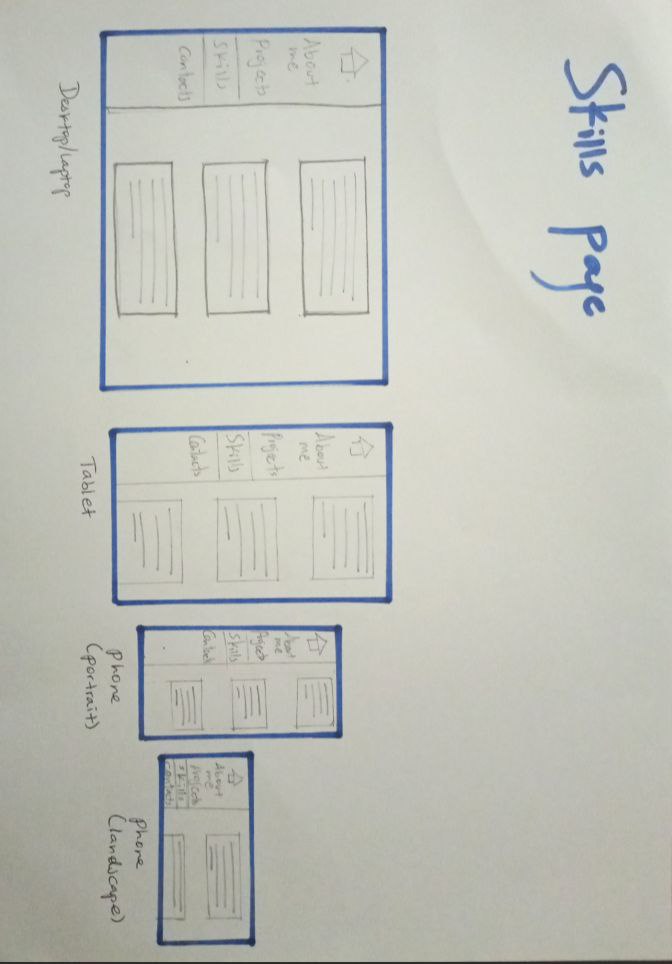 Skills page
About
me
Projects
Skills
Contacts
Desktop/Laptop
About
me
Projects
Skills
Contacts
Tablet
About
me
Project
Skills
Contact
phone
(portrait)
About
me
Projects
Skills
Contacts
phone
(landscape)